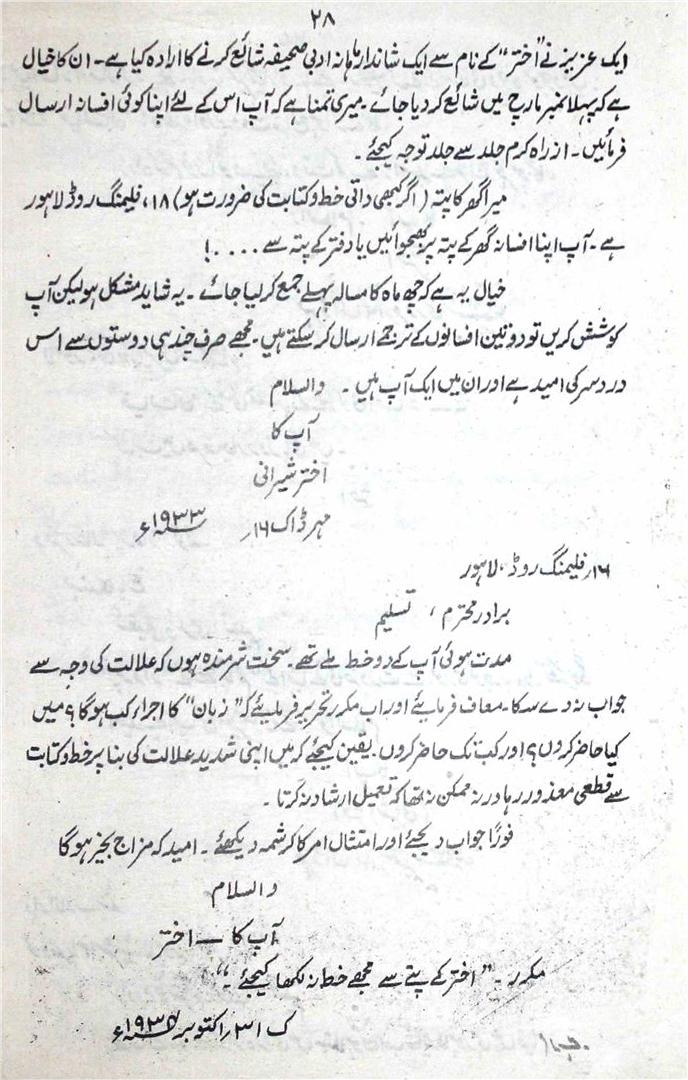 ۲۸
ایک عزیز نے "اختر" کے نام سے ایک شاندار ماہانہ ادبی صحیفہ شائع کرنے کا ارادہ کیا ہے۔ ان کا خیال
ہے کہ پہلا نمبر مارچ میں شائع کر دیا جائے۔ میری تمنا ہے کہ آپ اس کے لئے اپنا کوئی افسانہ ارسال
فرمائیں۔ از راہ کرم جلد سے جلد توجہ کیجئے۔
میرا گھر کا پتہ (اگر کبھی ذاتی خط و کتابت کی ضرورت ہو) ۱۸، فلیمنگ روڈ لاہور
ہے۔ آپ اپنا افسانہ گھر کے پتہ پر بھجوائیں یا دفتر کے پتہ سے ....!
خیال یہ ہے کہ چھ ماہ کا مسالہ پہلے جمع کر لیا جائے۔ یہ شاید مشکل ہو لیکن آپ
کوشش کریں تو دو تین افسانوں کے ترجمے ارسال کر سکتے ہیں۔ مجھے صرف چند ہی دوستوں سے اس
درد سر کی امید ہے اور ان میں ایک آپ ہیں۔ والسلام
آپ کا
اختر شیرانی
مہر ڈاک ۱۶؍ ۱۹۳۳ء
۱۶؍ فلیمنگ روڈ، لاہور
برادر محترم، تسلیم
مدت ہوئی آپ کے دو خط ملے تھے۔ سخت شرمندہ ہوں کہ علالت کی وجہ سے
جواب نہ دے سکا۔ معاف فرمائیے اور اب مکرر تحریر فرمائیے کہ "زبان" کا اجراء کب ہوگا؟ میں
کیا حاضر کروں؟ اور کب تک حاضر کروں۔ یقین کیجئے کہ میں اپنی شدید علالت کی بنا پر خط و کتابت
سے قطعی معذور رہا ورنہ ممکن نہ تھا کہ تعمیل ارشاد نہ کرتا۔
فوراً جواب دیجئے اور امتثال امر کا کرشمہ دیکھئے۔ امید کہ مزاج بخیر ہوگا
والسلام
آپ کا — اختر
مکرر۔ "اختر کے پتے سے مجھے خط نہ لکھا کیجئے۔"
ک ۳۱؍ اکتوبر ۱۹۳۵ء